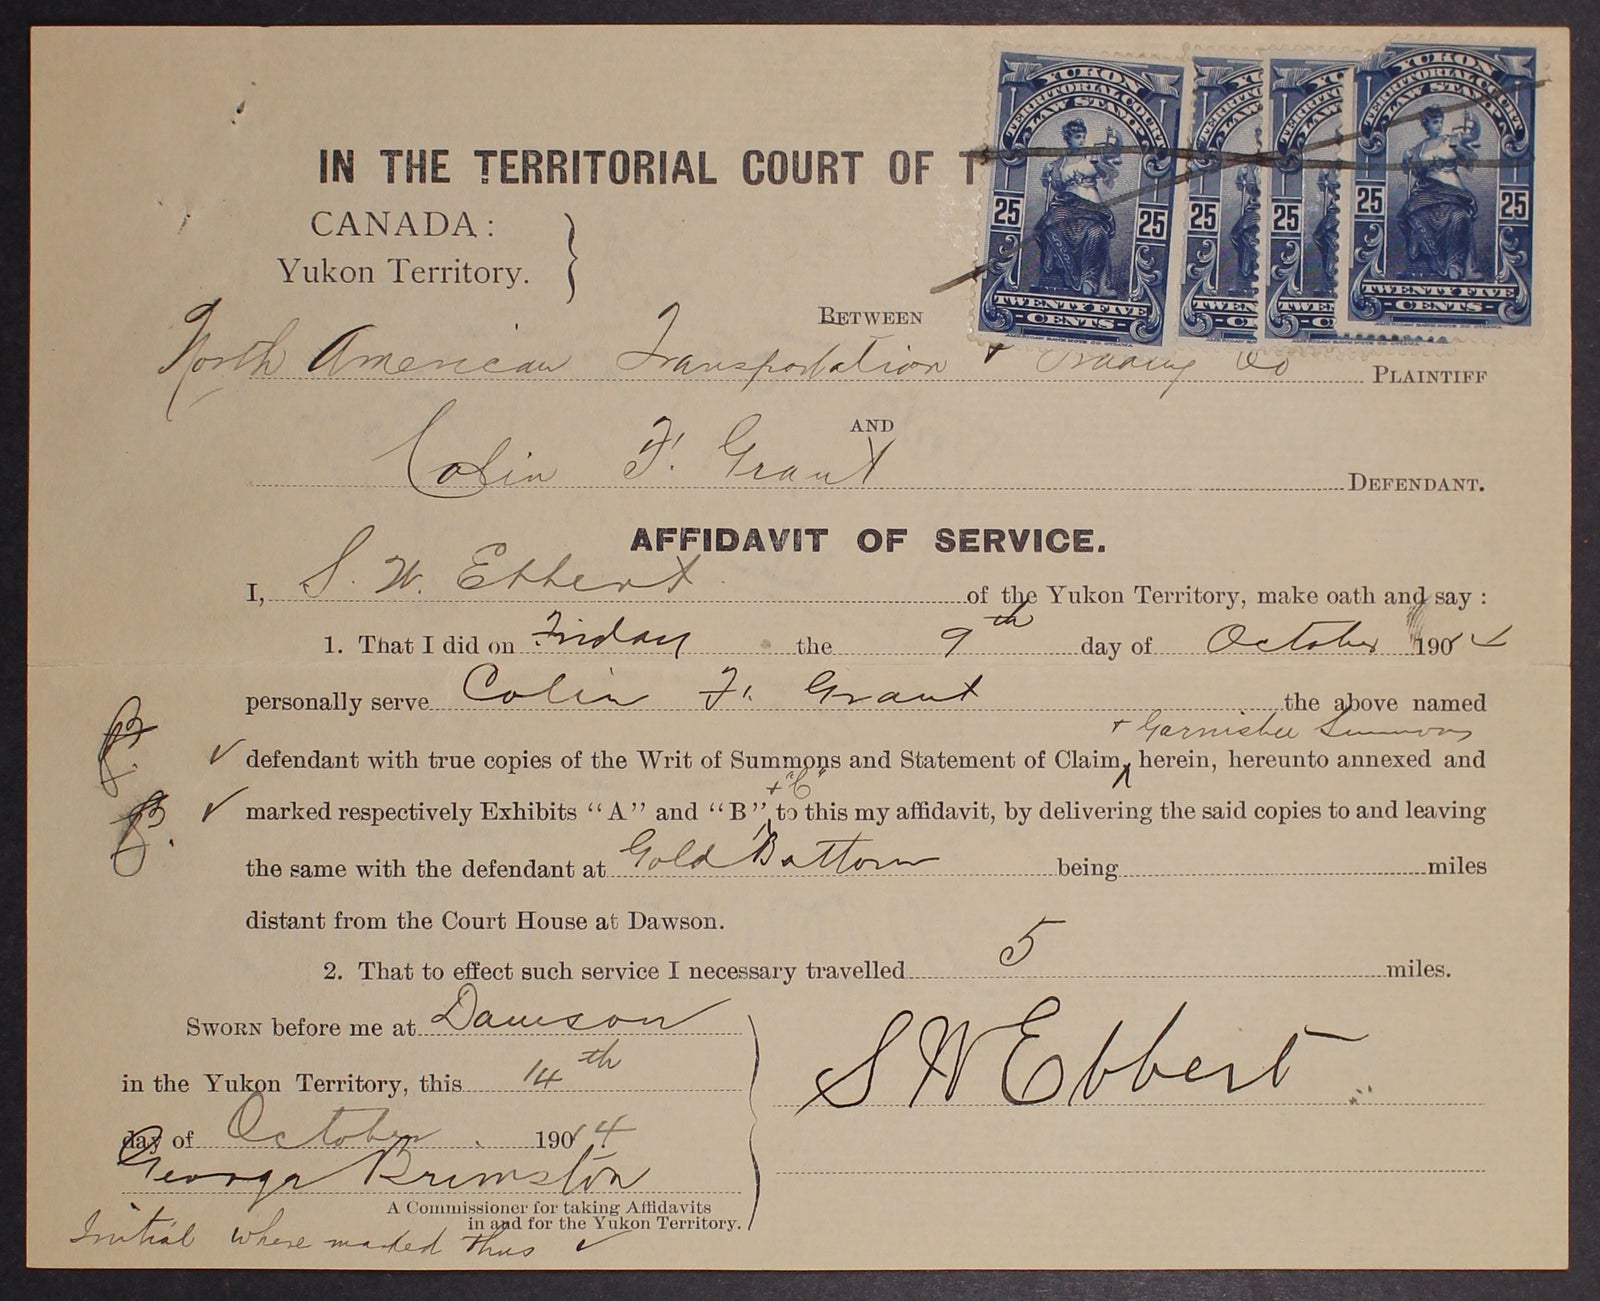 IN THE TERRITORIAL COURT OF T
CANADA:
Yukon Territory.
YUKON
TERRITORIAL COURT
LAW STAMP
25 25
TWENTY FIVE
CENTS
25
TWENTY
25
TWENTY
YUKON
TERRITORIAL COURT
LAW STAMP
25 25
TWENTY FIVE
CENTS
BETWEEN
North American Transportation + Trading Co PLAINTIFF
AND
Colin F. Grant DEFENDANT.
AFFIDAVIT OF SERVICE.
I, S. W. Ebbert of the Yukon Territory, make oath and say :
1. That I did on Friday the 9th day of October 190
personally serve Colin F. Grant the above named
+ Garnishee Summons
defendant with true copies of the Writ of Summons and Statement of Claim herein, hereunto annexed and
+ "C"
marked respectively Exhibits "A" and "B" to this my affidavit, by delivering the said copies to and leaving
the same with the defendant at Gold Bottom being miles
distant from the Court House at Dawson.
2. That to effect such service I necessary travelled 5 miles.
SWORN before me at Dawson
in the Yukon Territory, this 14th
day of October 1904
S W Ebbert
George Brimston
A Commissioner for taking Affidavits
in and for the Yukon Territory.
Initial where marked thus ✓